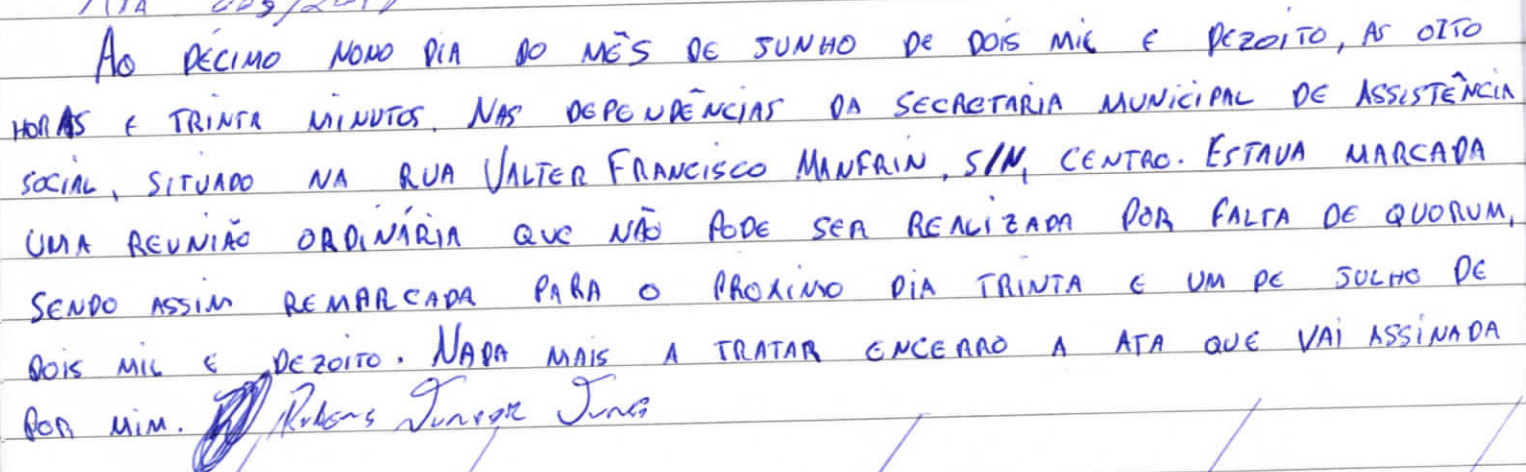 Ao DÉCIMO NONO DIA DO MÊS DE JUNHO DE DOIS MIL E DEZOITO, AS OITO
HORAS E TRINTA MINUTOS. NAS DEPENDÊNCIAS DA SECRETARIA MUNICIPAL DE ASSISTÊNCIA
SOCIAL, SITUADO NA RUA VALTER FRANCISCO MANFRIN, S/N, CENTRO. ESTAVA MARCADA
UMA REUNIÃO ORDINÁRIA QUE NÃO PODE SER REALIZADA POR FALTA DE QUORUM,
SENDO ASSIM REMARCADA PARA O PROXIMO DIA TRINTA E UM DE JULHO DE
DOIS MIL E DEZOITO. NADA MAIS A TRATAR ENCERRO A ATA QUE VAI ASSINADA
POR MIM. Rubens Junior